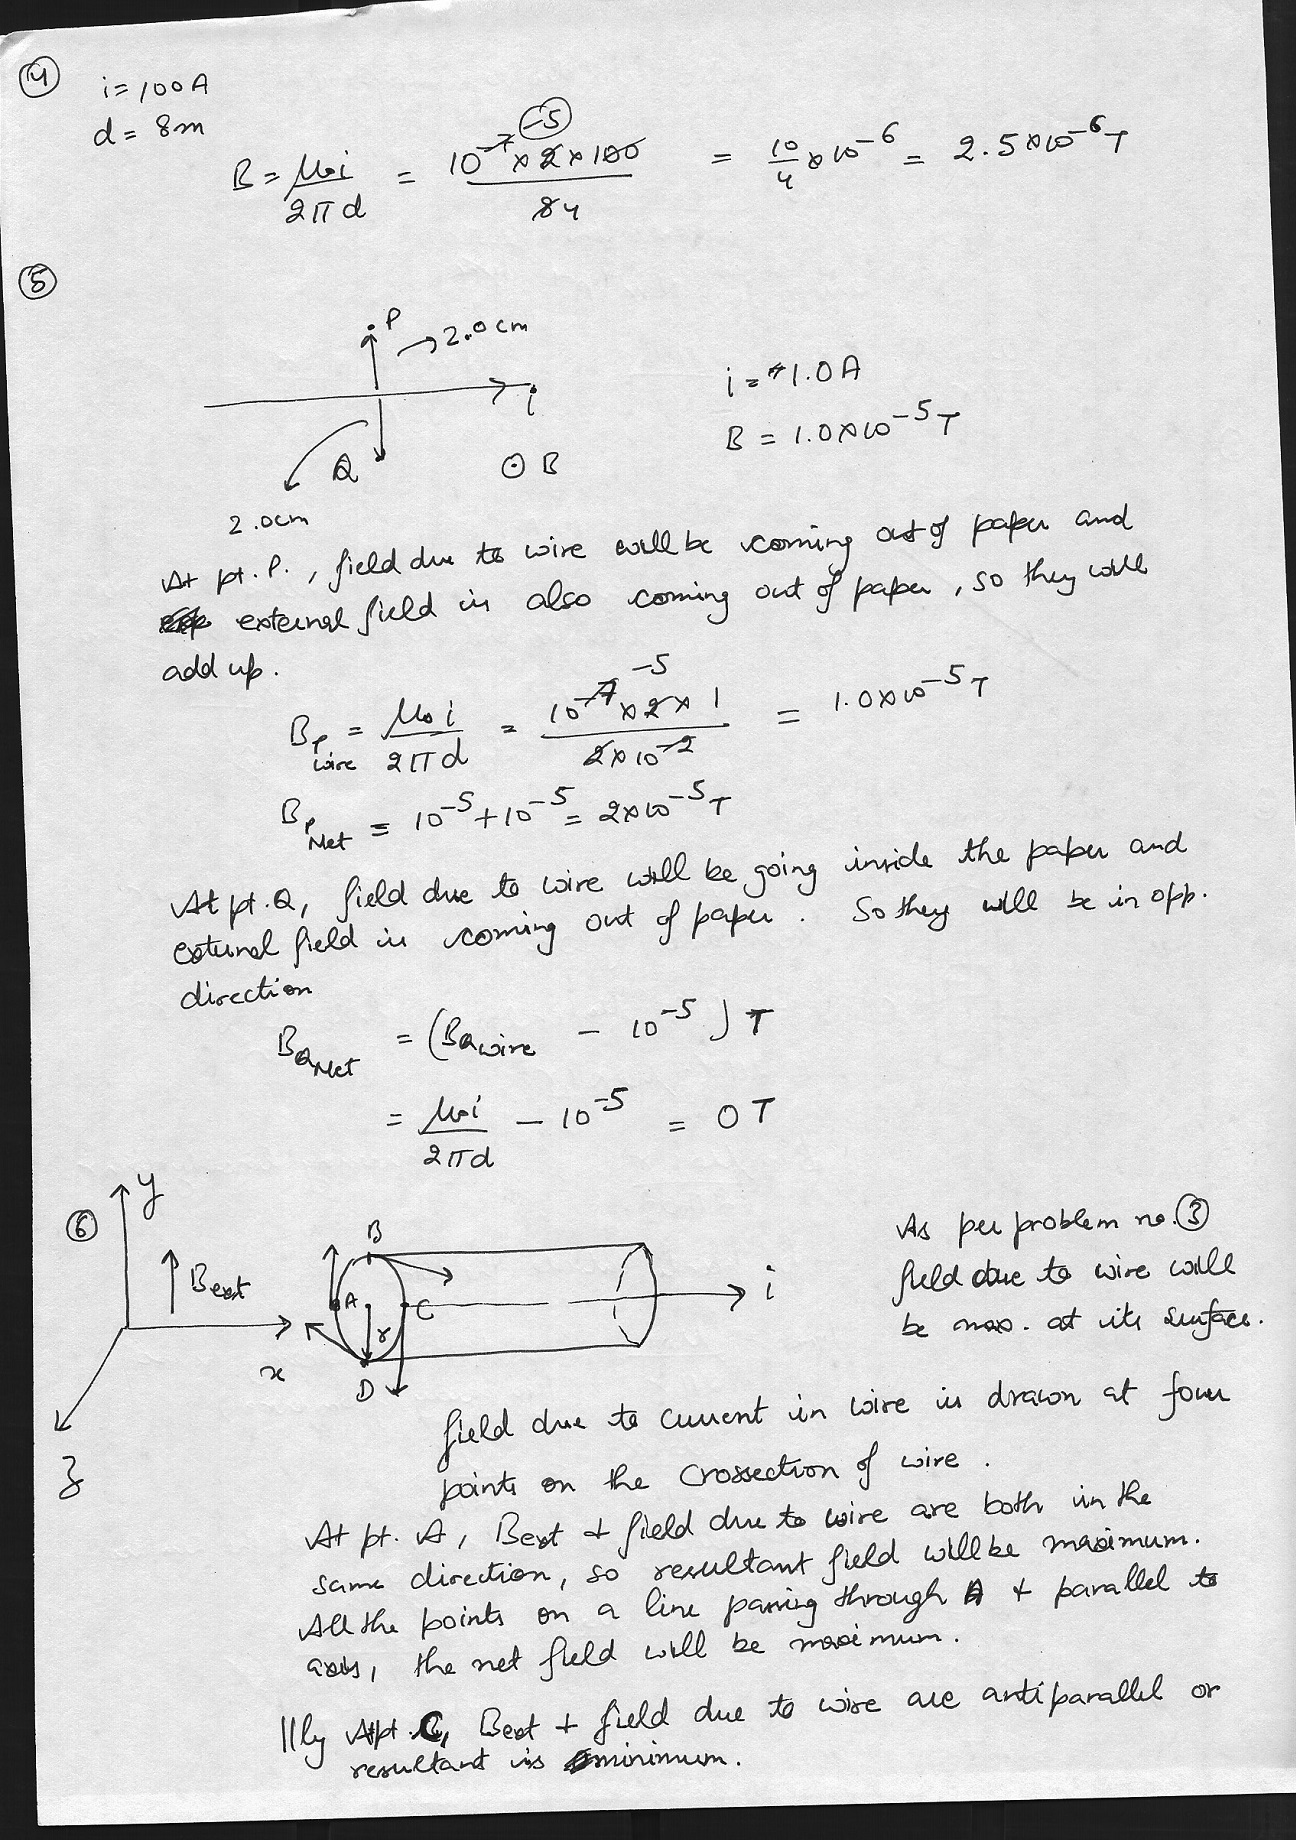 ④ i = 100A
d = 8m
B = μ₀i / 2πd = 10⁻⁷ × 2 × 100 / 8 4 = 10/4 × 10⁻⁶ = 2.5 × 10⁻⁶ T
-5
⑤
P → 2.0 cm
i
Q ⊙ B
2.0cm
i = 1.0 A
B = 1.0 × 10⁻⁵ T
At pt. P., field due to wire will be coming out of paper and
external field is also coming out of paper, so they will
add up.
B_P wire = μ₀ i / 2πd = 10⁻⁷ × 2 × 1 / 2 × 10⁻² = 1.0 × 10⁻⁵ T
-5
B_P Net = 10⁻⁵ + 10⁻⁵ = 2 × 10⁻⁵ T
At pt. Q, field due to wire will be going inside the paper and
external field is coming out of paper. So they will be in opp.
direction
B_Q Net = (B_Q wire - 10⁻⁵) T
= μ₀i / 2πd - 10⁻⁵ = 0 T
⑥ y
B_ext
x
z
B
A
r
C
D
i
As per problem no. ③
field due to wire will
be max. at its surface.
field due to current in wire is drawn at four
points on the crossection of wire.
At pt. A, Bext + field due to wire are both in the
same direction, so resultant field will be maximum.
All the points on a line passing through A + parallel to
axis, the net field will be maximum.
||ly At pt. C, Bext + field due to wire are antiparallel or
resultant is minimum.